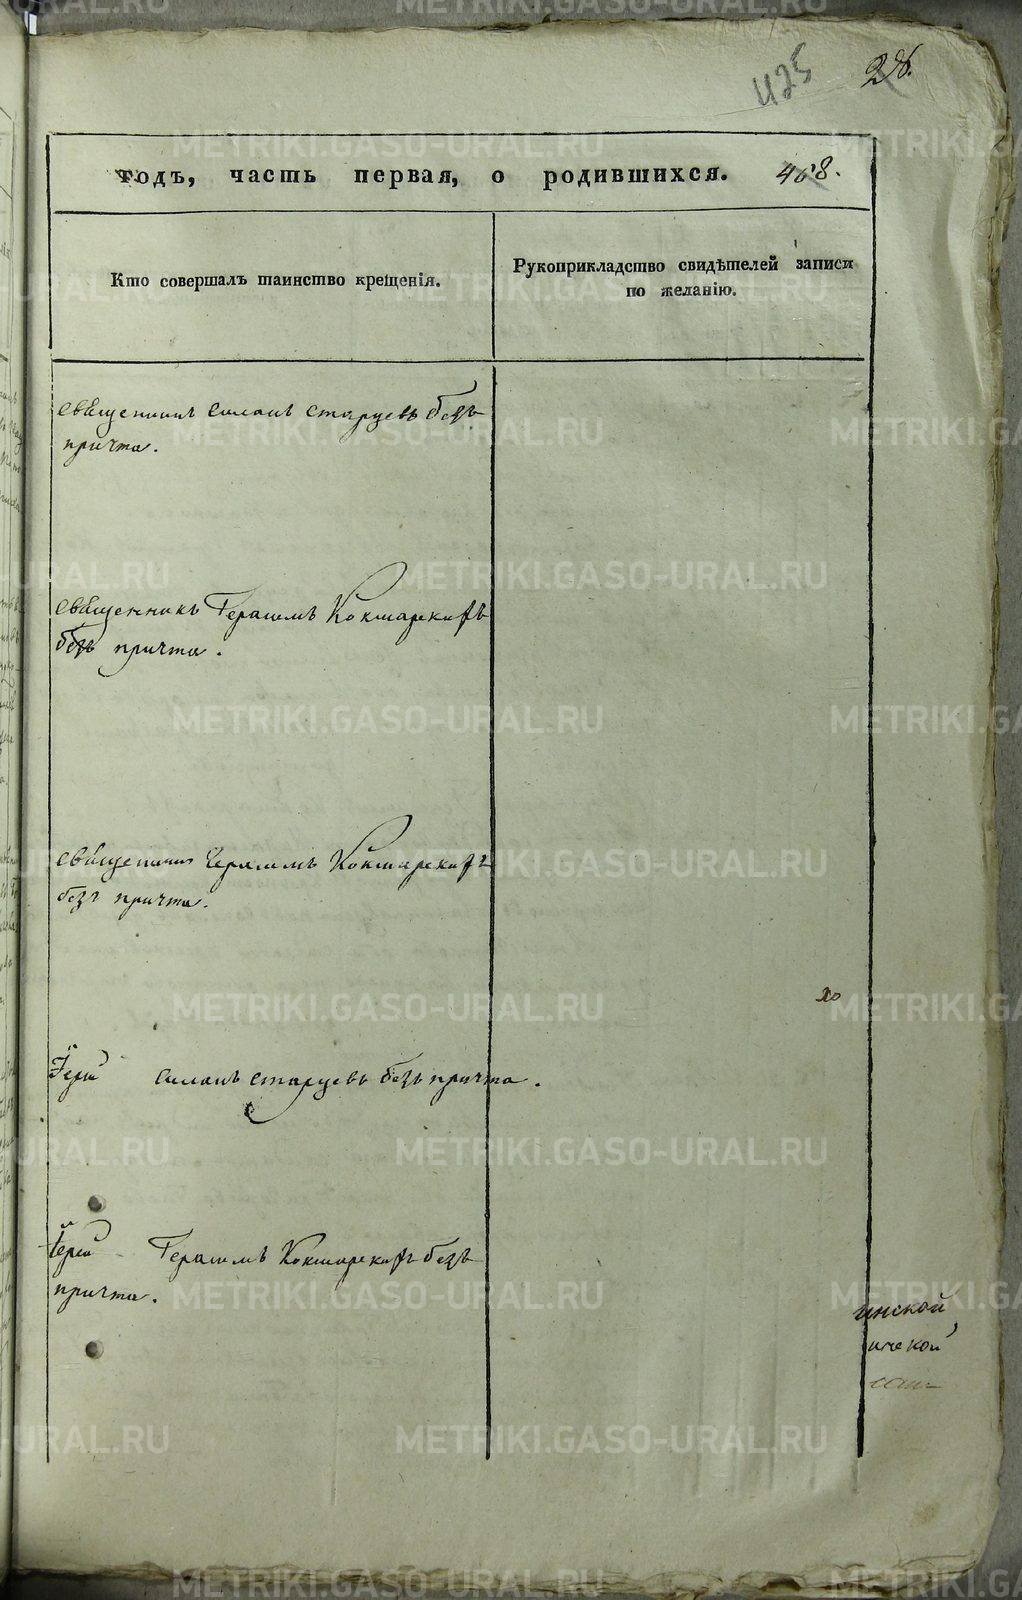 425
28.
годъ, часть первая, о родившихся. 408.
Кто совершалъ таинство крещенія.
Рукоприкладство свидѣтелей записи
по желанію.
священникъ Симонъ Старцевъ безъ
причта.
священникъ Герасимъ Кокшарскихъ
безъ причта.
священникъ Герасимъ Кокшарскихъ
безъ причта.
Іерей Симонъ Старцевъ безъ причта.
Іерей Герасимъ Кокшарскихъ безъ
причта.
инской
ической
METRIKI.GASO-URAL.RU